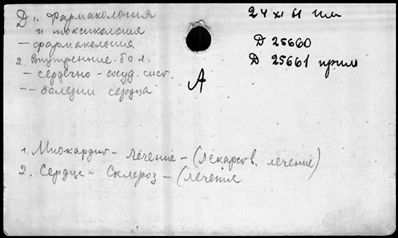 Д 1. Фармакология
и токсикология
– фармакология
2. Внутренние бол.
– сердечно-сосуд. сист.
-- болезни сердца
24 XI 61
Д 25660
Д 25661 прил
А
1. Миокардит – Лечение – (Лекарств. лечение)
2. Сердце – Склероз – (лечение